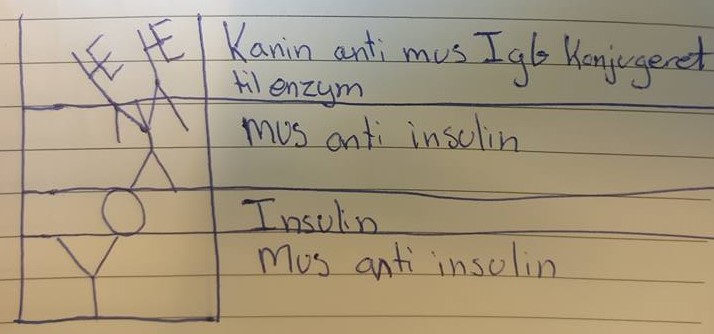 HE HE
Kanin anti mus IgG Konjugeret
til enzym
mus anti insulin
Insulin
Mus anti insulin